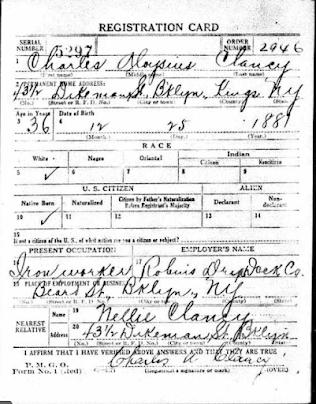 REGISTRATION CARD
SERIAL NUMBER 5297 ORDER NUMBER 2946
1 Charles Aloysius Clancy
(First name) (Middle name) (Last name)
2 PERMANENT HOME ADDRESS:
43½ Dikeman St. Bklyn. Kings NY
(No.) (Street or R. F. D. No.) (City or town) (County) (State)
Age in Years 3 Date of Birth 4
36 12 25 1881
(Month.) (Day.) (Year.)
RACE
White Negro Oriental Indian
Citizen Noncitizen
5 ✓ 6 7 8 9
U. S. CITIZEN ALIEN
Native Born Naturalized Citizen by Father's Naturalization Before Registrant's Majority Declarant Non-declarant
10 ✓ 11 12 13 14
15
If not a citizen of the U. S., of what nation are you a citizen or subject?
PRESENT OCCUPATION EMPLOYER'S NAME
16 Ironworker 17 Robins Dry Dock Co.
18 PLACE OF EMPLOYMENT OR BUSINESS:
Beard St. Bklyn., NY
(No.) (Street or R. F. D. No.) (City or town) (County) (State)
NEAREST RELATIVE
Name 19 Nellie Clancy
Address 20 43½ Dikeman St. Bklyn
(No.) (Street or R. F. D. No.) (City or town) (State)
I AFFIRM THAT I HAVE VERIFIED ABOVE ANSWERS AND THAT THEY ARE TRUE
P. M. G. O.
Form No. 1 (Red) Charles A. Clancy
(Registrant's signature or mark) (OVER)